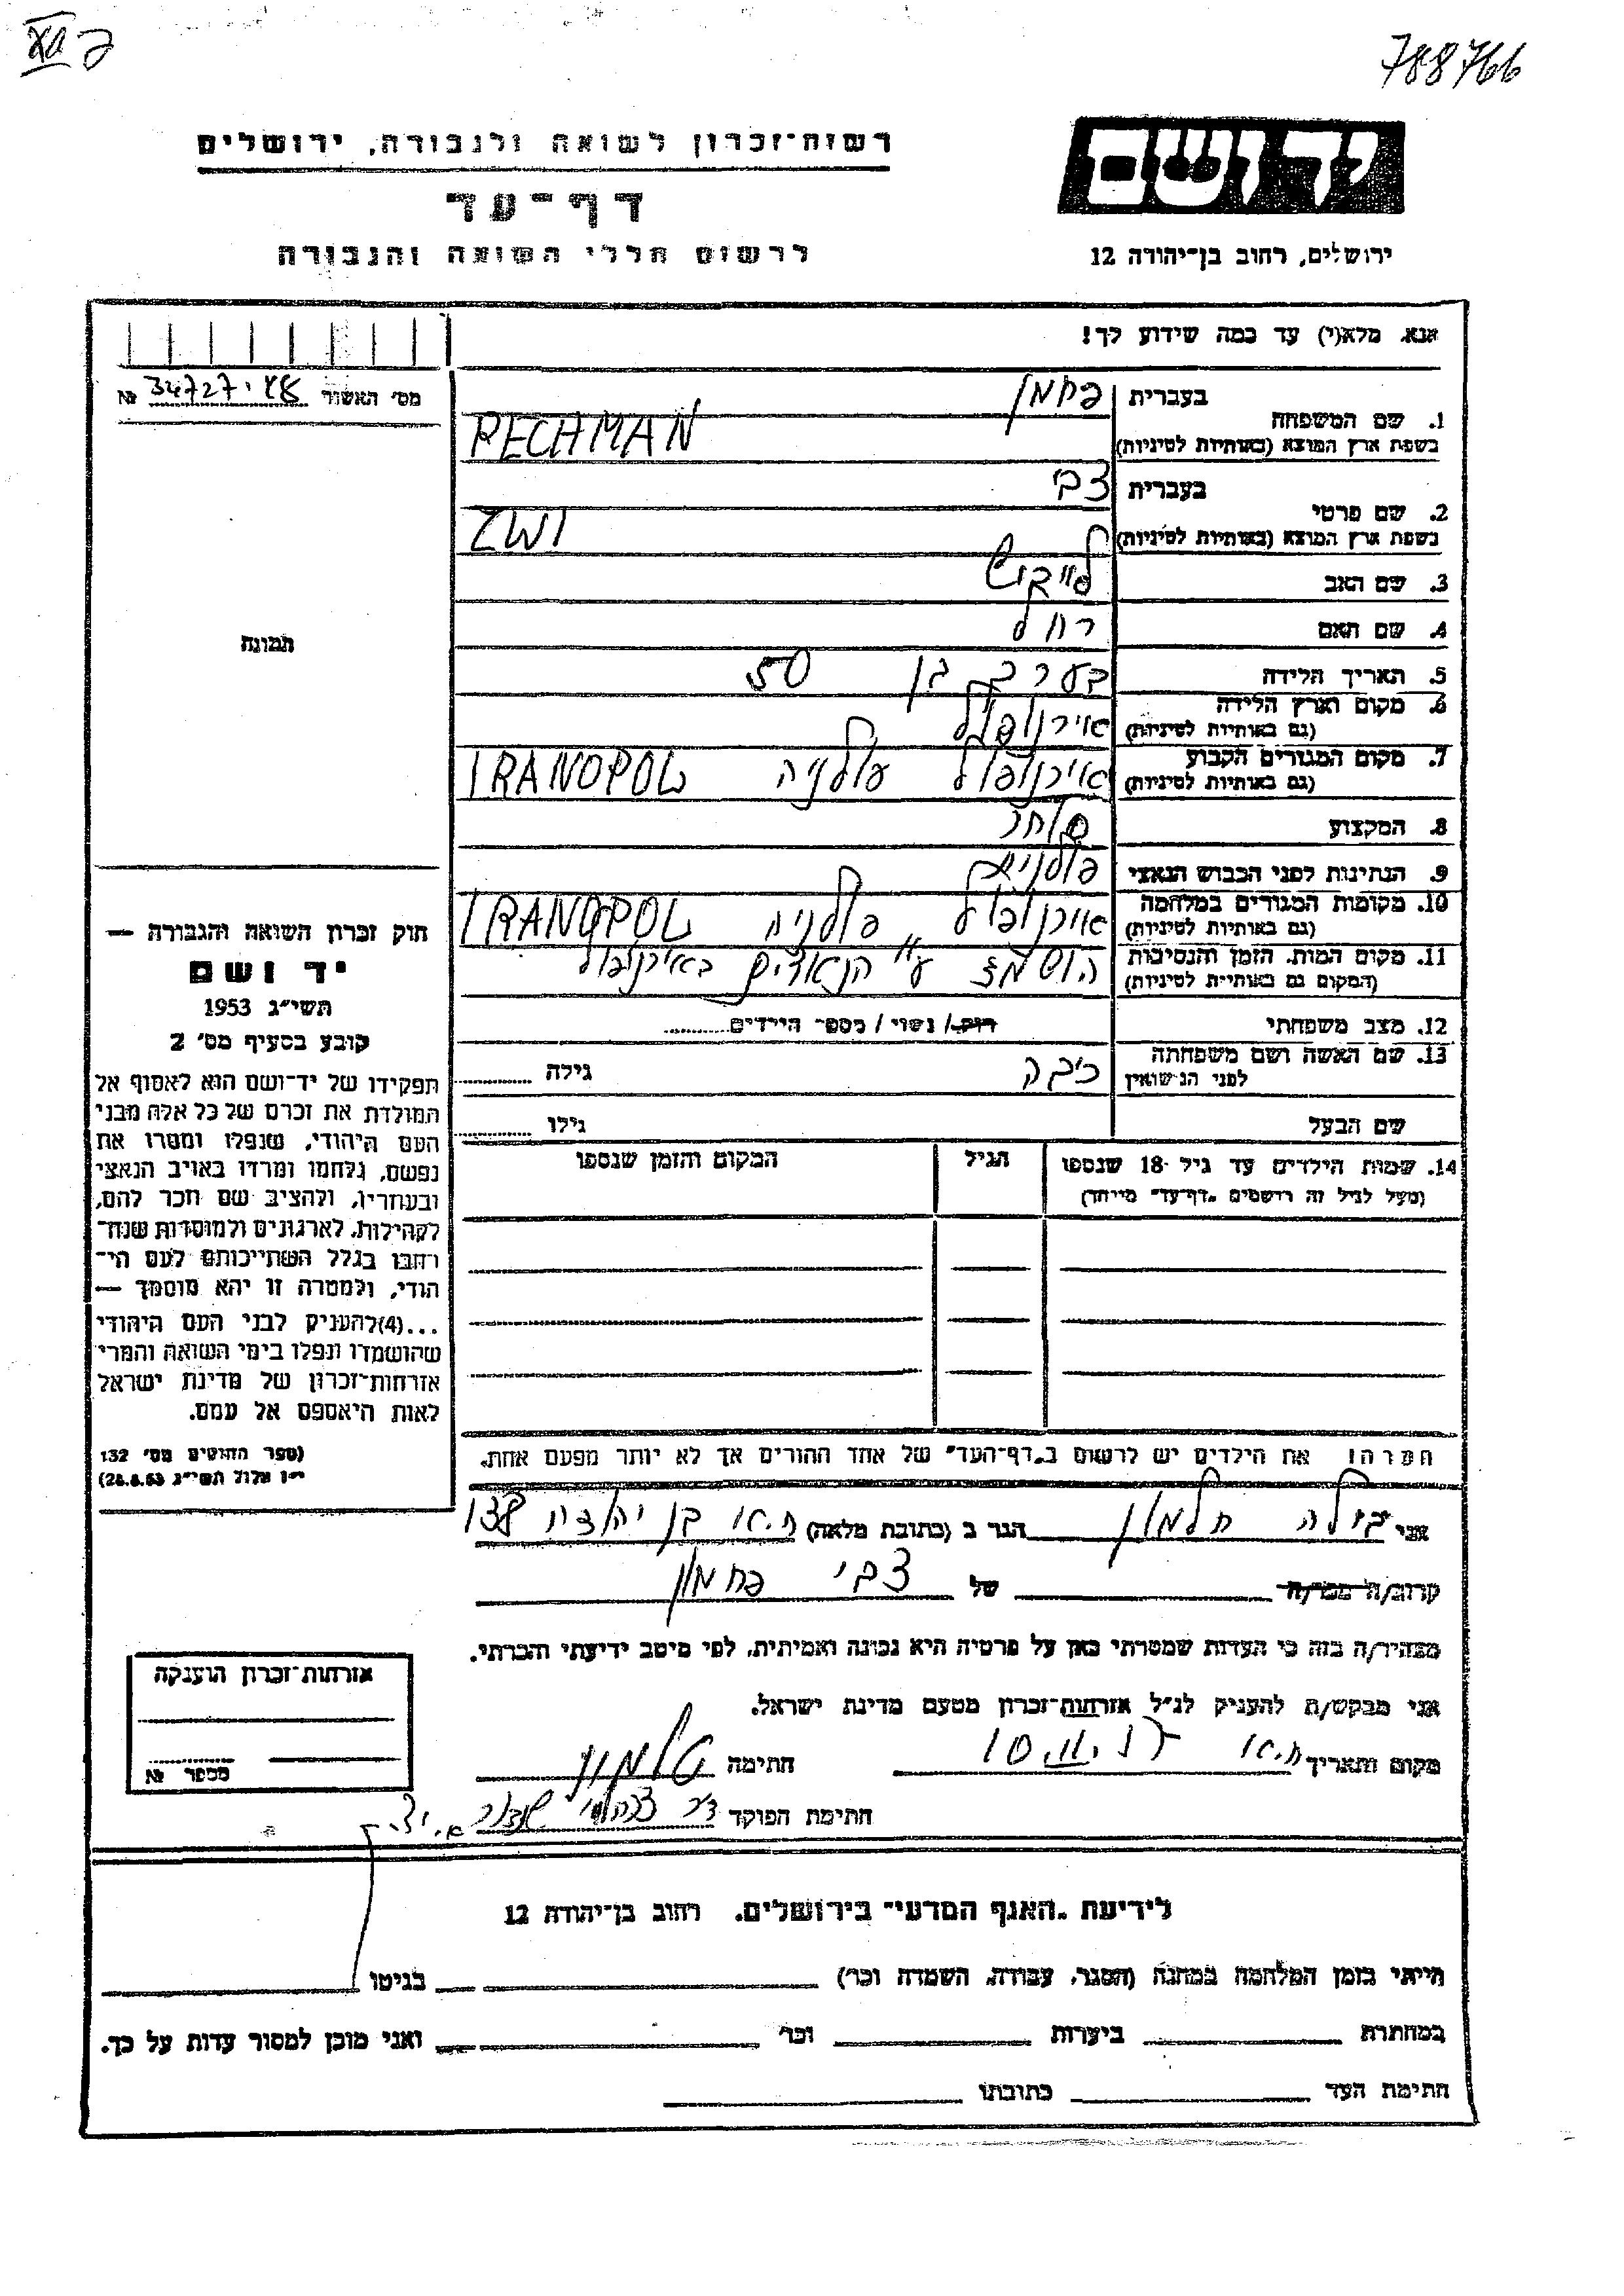 788766
יד ושם
רשות־זכרון לשואה ולגבורה, ירושלים
דף־עד
לרשום חללי השואה והגבורה
ירושלים, רחוב בן־יהודה 12
אנא, מלא(י) עד כמה שידוע לך!
מס׳ האשור 34727 № 
1. שם המשפחה בעברית פחמן
בשפת ארץ המוצא (באותיות לטיניות) PECHMAN
2. שם פרטי בעברית צבי
בשפת ארץ המוצא (באותיות לטיניות) ZWI
3. שם האב לייבוש
4. שם האם רחל
5. תאריך הלידה בערך בן 50
6. מקום וארץ הלידה
(גם באותיות לטיניות) אירנופול
7. מקום המגורים הקבוע
(גם באותיות לטיניות) אירנופול פולניה IRANOPOL
8. המקצוע סוחר
9. הנתינות לפני הכבוש הנאצי פולנית
10. מקומות המגורים במלחמה
(גם באותיות לטיניות) אירנופול פולניה IRANOPOL
11. מקום המות, הזמן והנסיבות
(המקום גם באותיות לטיניות) הושמד ע״י הנאצים באירנופול
12. מצב משפחתי רווק / נשוי / מספר הילדים
13. שם האשה ושם משפחתה
לפני הנישואין גילה
שם הבעל גילו
14. שמות הילדים עד גיל 18 שנספו הגיל המקום והזמן שנספו
(מעל לגיל זה רושמים „דף־עד״ מיוחד)
תמונה
חוק זכרון השואה והגבורה —
יד ושם
תשי״ג 1953
קובע בסעיף מס׳ 2
תפקידו של יד־ושם הוא לאסוף אל
המולדת את זכרם של כל אלה מבני
העם היהודי, שנפלו ומסרו את
נפשם, נלחמו ומרדו באויב הנאצי
ובעוזריו, ולהציב שם וזכר להם,
לקהילות, לארגונים ולמוסדות שנח־
רבו בגלל השתייכותם לעם הי־
הודי, ולמטרה זו יהא מוסמך —
...(4) להעניק לבני העם היהודי
שהושמדו ונפלו בימי השואה והמרי
אזרחות־זכרון של מדינת ישראל
לאות היאספם אל עמם.
(ספר החוקים מס׳ 132
י״ז אלול תשי״ג 28.8.53)
הערה: את הילדים יש לרשום ב„דף־העד״ של אחד ההורים אך לא יותר מפעם אחת.
אני הגר ב (כתובת מלאה) ת.א. בן יהודה 138
קרוב/ה מכר/ה של צבי פחמן
מצהיר/ה בזה כי העדות שמסרתי כאן על פרטיה היא נכונה ואמיתית, לפי מיטב ידיעתי והכרתי.
אני מבקש/ת להעניק לנ״ל אזרחות־זכרון מטעם מדינת ישראל.
מקום ותאריך ת.א. חתימה
חתימת הפוקד
אזרחות־זכרון הוענקה
מספר №
לידיעת „האגף המדעי״ בירושלים, רחוב בן־יהודה 12
הייתי בזמן המלחמה במחנה (הסגר, עבודה, השמדה וכו׳) בגיטו
במחתרת ביערות וכו׳ ואני מוכן למסור עדות על כך.
חתימת העד כתובתו